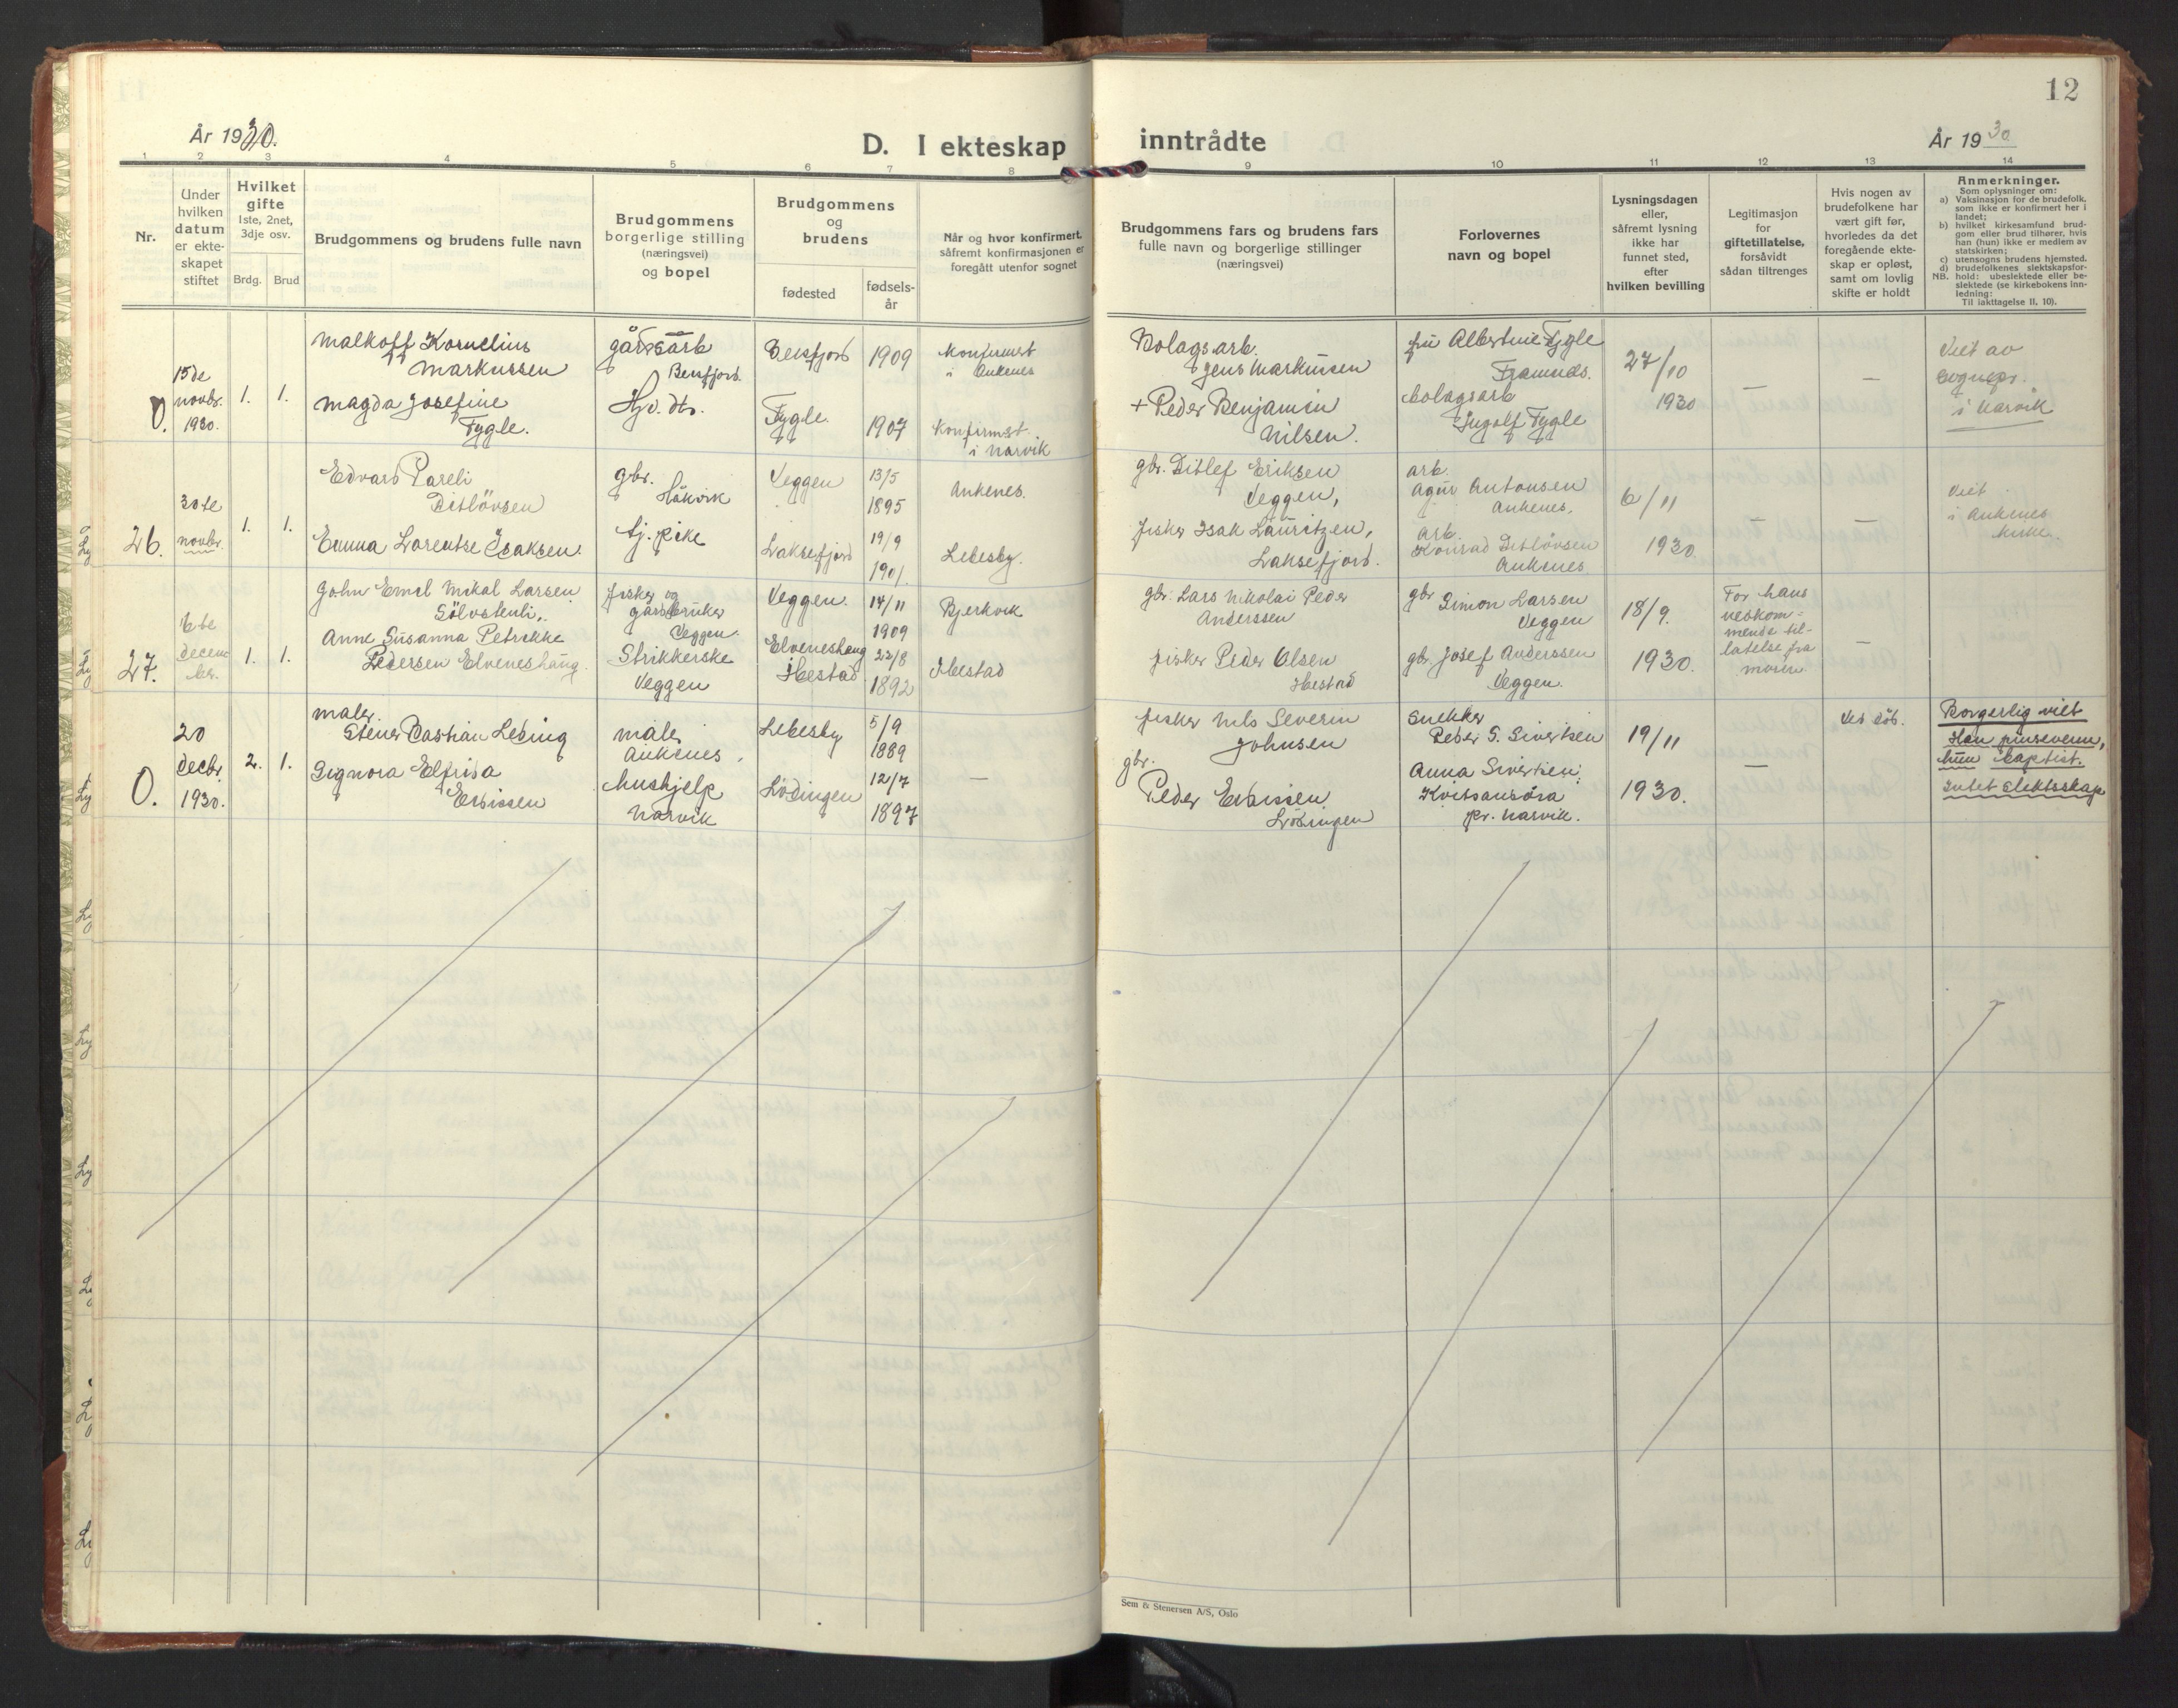 12
År 1930.
D. I ekteskap inntrådte
År 1930
1 2 3 4 5 6 7 8 9 10 11 12 13 14
Nr.
Under
hvilken
datum
er ekte-
skapet
stiftet
Hvilket
gifte
1ste, 2net,
3dje osv.
Brdg. Brud
Brudgommens og brudens fulle navn
Brudgommens
borgerlige stilling
(næringsvei)
og bopel
Brudgommens
og
brudens
fødested
fødsels-
år
Når og hvor konfirmert,
såfremt konfirmasjonen er
foregått utenfor sognet
Brudgommens fars og brudens fars
fulle navn og borgerlige stillinger
(næringsvei)
Forlovernes
navn og bopel
Lysningsdagen
eller,
såfremt lysning
ikke har
funnet sted,
efter
hvilken bevilling
Legitimasjon
for
giftetillatelse,
forsåvidt
sådan tiltrenges
Hvis nogen av
brudefolkene har
vært gift før,
hvorledes da det
foregående ekte-
skap er opløst,
samt om lovlig
skifte er holdt
Anmerkninger.
Som oplysninger om:
a) Vaksinasjon for de brudefolk,
som ikke er konfirmert her i
landet;
b) hvilket kirkesamfund brud-
gom eller brud tilhører, hvis
han (hun) ikke er medlem av
statskirken;
c) utensogns brudens hjemsted.
d) brudefolkenes slektskapsfor-
NB. hold: ubeslektede eller be-
slektede (se kirkebokens inn-
ledning:
Til iakttagelse II, 10).
0.
15de
novbr.
1930.
1. 1.
Malkoff Kornelius
Markussen
Magda Josefine
Fygle.
gårdsarb
Beisfjord.
Hjd. dtr.
Beisfjord 1909
Fygle. 1907
Konfirmert
i Ankenes
Konfirmert
i Narvik
Bolagsarb.
Jens Markussen
+ Peder Benjamin
Nilsen.
fru Albertine Fygle
bolagsarb
Ingolf Fygle
27/10
1930
—
—
Viet av
sognepr.
i Narvik
26.
30te
novbr.
1. 1.
Edvard Pareli
Ditlövsen
Emma Lorentse Isaksen.
gbr.
Håkvik
tj. pike
Veggen
13/5
1895
Laksefjord
19/9
1901.
Ankenes.
Lebesby.
gbr. Ditlef Eriksen
Veggen,
fisker Isak Lauritzen,
Laksefjord.
arb.
Antonsen
Ankenes.
arb.
Konrad Ditlövsen
Ankenes
6/11
1930.
—
—
Viet
i Ankenes
kirke.
27.
6te
decem
ber.
1. 1.
John Emil Mikal Larsen
Sölvstenli.
Anne Susanna Petrikke
Pedersen Elveneshaug.
Fisker og
gårdbruker
Veggen.
Strikkerske
Veggen
Veggen.
14/11
1909
Elveneshaug
Ibestad
22/8
1892
Bjerkvik
Ibestad
gbr. Lars Nikolai Peder
Anderssen
fisker Peder Olsen
Ibestad
gbr Simon Larsen
Veggen
gbr. Josef Anderssen
Veggen.
18/9.
1930.
For hans
vedkom-
mende til-
latelse fra
moren
—
0.
20
decbr.
1930.
2. 1.
maler.
Stener Bastian Lebing
Signora Elfrida
Erbissen
maler
Ankenes.
hushjelp
Narvik
Lebesby
5/9
1889
Lödingen
12/7
1897
—
fisker Nils Severin
Johnsen
gbr.
Peder Erbissen
Lödingen
Snekker
Peder S. Sivertsen
Anna Sivertsen
Kvitsandöra
pr. Narvik.
19/11
1930.
—
Ved död.
Borgerlig viet
Han pinsevenn,
hun baptist.
Intet slektsskap
Sem & Stenersen A/S, Oslo